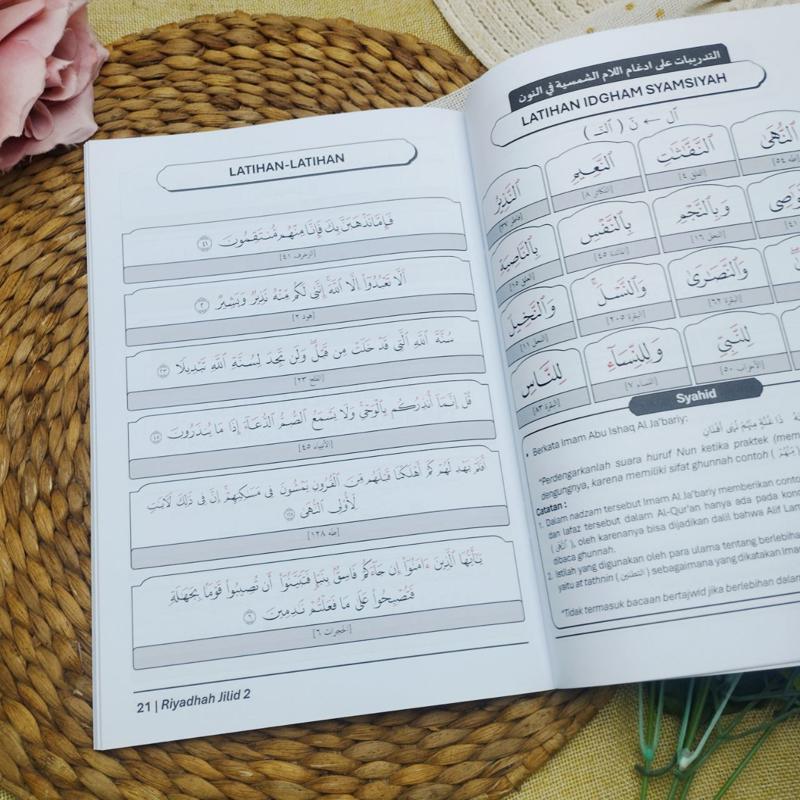 LATIHAN-LATIHAN
فَإِمَّا نَذْهَبَنَّ بِكَ فَإِنَّا مِنْهُم مُّنتَقِمُونَ ٤١
[الزخرف ٤١]
أَلَّا تَعْبُدُوٓا۟ إِلَّا ٱللَّهَ ۚ إِنَّنِى لَكُم مِّنْهُ نَذِيرٌ وَبَشِيرٌ ٢
[هود ٢]
سُنَّةَ ٱللَّهِ ٱلَّتِى قَدْ خَلَتْ مِن قَبْلُ ۖ وَلَن تَجِدَ لِسُنَّةِ ٱللَّهِ تَبْدِيلًا ٢٣
[الفتح ٢٣]
قُلْ إِنَّمَآ أُنذِرُكُم بِٱلْوَحْىِ ۚ وَلَا يَسْمَعُ ٱلصُّمُّ ٱلدُّعَآءَ إِذَا مَا يُنذَرُونَ ٤٥
[الأنبياء ٤٥]
أَفَلَمْ يَهْدِ لَهُمْ كَمْ أَهْلَكْنَا قَبْلَهُم مِّنَ ٱلْقُرُونِ يَمْشُونَ فِى مَسَٰكِنِهِمْ ۗ إِنَّ فِى ذَٰلِكَ لَءَايَٰتٍ
لِّأُو۟لِى ٱلنُّهَىٰ ١٢٨
[طه ١٢٨]
يَٰٓأَيُّهَا ٱلَّذِينَ ءَامَنُوٓا۟ إِن جَآءَكُمْ فَاسِقٌۢ بِنَبَإٍ فَتَبَيَّنُوٓا۟ أَن تُصِيبُوا۟ قَوْمًۢا بِجَهَٰلَةٍ
فَتُصْبِحُوا۟ عَلَىٰ مَا فَعَلْتُمْ نَٰدِمِينَ ٦
[الحجرات ٦]
21 | Riyadhah Jilid 2
التدريبات على ادغام اللام الشمسية في النون
LATIHAN IDGHAM SYAMSIYAH
اَلْ ← نَ ( اَلنَّ )
ٱلنُّهَىٰ ٱلنَّفَّٰثَٰتِ ٱلنَّعِيمِ ٱلنَّذِيرُ
[طه ٥٤] [الفلق ٤] [التكاثر ٨] [فاطر ٣٧]
وَبِٱلنَّجْمِ بِٱلنَّفْسِ بِٱلنَّاصِيَةِ
[النحل ١٦] [المائدة ٤٥] [العلق ١٥]
وَٱلنَّصَٰرَىٰ وَٱلنَّسْلَ وَٱلنَّخِيلَ
[البقرة ٦٢] [البقرة ٢٠٥] [النحل ١١]
لِلنَّبِىِّ وَلِلنِّسَآءِ لِلنَّاسِ
الأحزاب ٥٠] [النساء ٧] [البقرة ٨٣]
Syahid
• Berkata Imam Abu Ishaq Al Ja'bariy:
"Perdengarkanlah suara huruf Nun ketika praktek
dengungnya, karena memiliki sifat ghunnah contoh ( مِنْهُمْ )
Catatan :
1. Dalam nadzam tersebut Imam Al Ja'bariy memberikan
dan lafaz tersebut dalam Al-Qur'an hanya ada pada
oleh karenanya bisa dijadikan dalil bahwa Alif
dibaca ghunnah.
2. Istilah yang digunakan oleh para ulama tentang
yaitu at tathnin ( التطنين ) sebagaimana yang dikatakan
"Tidak termasuk bacaan bertajwid jika berlebihan